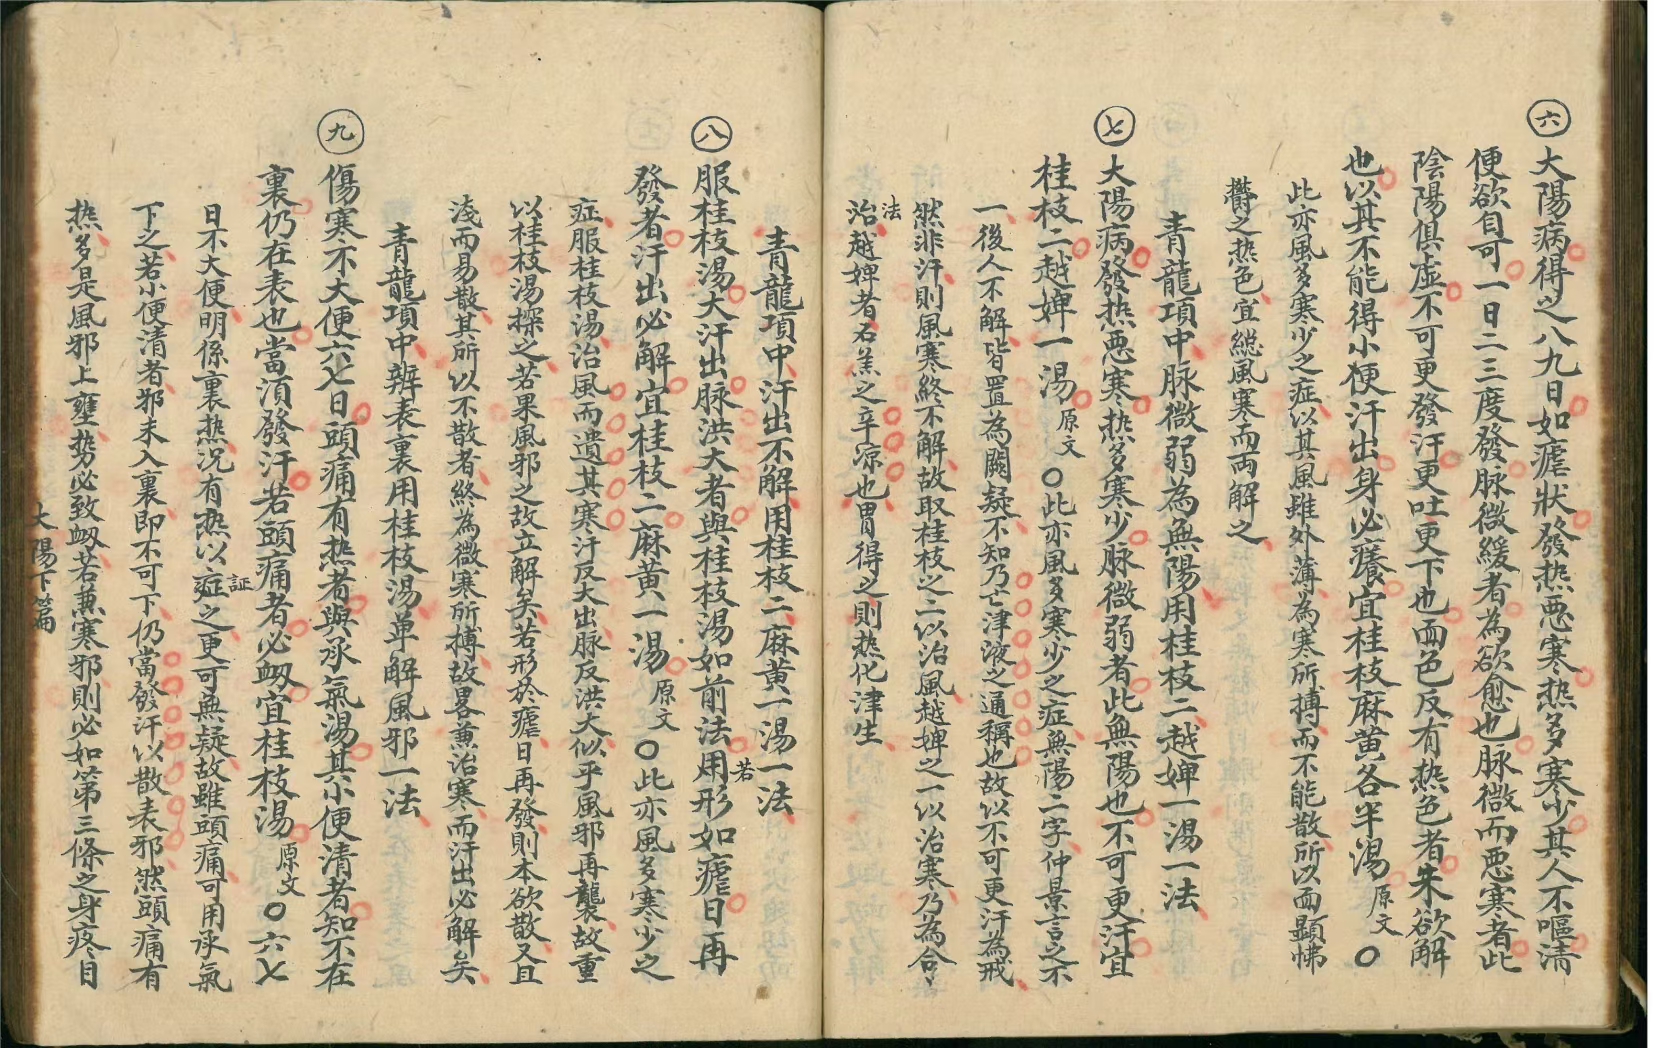 ㊅大陽病得之八九日如瘧狀發热悪寒热多寒少其人不嘔清
便欲自可一日二三度發脉微緩者為欲愈也脉微而悪寒者此
陰陽俱虛不可更發汗更吐更下也面色反有热色者朱欲解
也以其不能得小便汗出身必癢宜桂枝麻黄各半湯原文○
此亦風多寒少之症以其風雖外薄為寒所摶而不能散所以面顯怫
欝之热色宜緫風寒而両解之
青龍項中脉微弱為無陽用桂枝二越婢一湯一法
㊆大陽病發热悪寒热多寒少脉微弱者此無陽也不可更汗宜
桂枝二越婢一湯原文○此亦風多寒少之症無陽二字仲景言之不
一後人不解皆置為闕疑不知乃亡津液之通稱也故以不可更汗為戒
然非汗則風寒終不解故取桂枝之二以治風越婢之一以治寒乃為合
法
治越婢者石羔之辛凉也胃得之則热化津生
青龍項中汗出不解用桂枝二麻黄一湯一法
㊇服桂枝湯大汗出脉洪大者與桂枝湯如前法用形如瘧日再
若
發者汗出必解宜桂枝二麻黄一湯原文○此亦風多寒少之
症服桂枝湯治風而遺其寒汗反大出脉反洪大似乎風邪再襲故重
以桂枝湯探之若果風邪之故立解矣若形於瘧日再發則本欲散又且
淺而易散其所以不散者終為微寒所摶故畧兼治寒而汗出必解矣
青龍項中辨表裏用桂枝湯单解風邪一法
㊈傷寒不大便六七日頭痛有热者與承氣湯其小便清者知不在
裏仍在表也當湏發汗若頭痛者必衂宜桂枝湯原文○六七
日不大便明係裏热况有热以症之更可無疑故雖頭痛可用承氣
証
下之若小便清者邪未入裏即不可下仍當發汗以散表邪然頭痛有
热多是風邪上壅势必致衂若兼寒邪則必如第三條之身疼目
大陽下篇